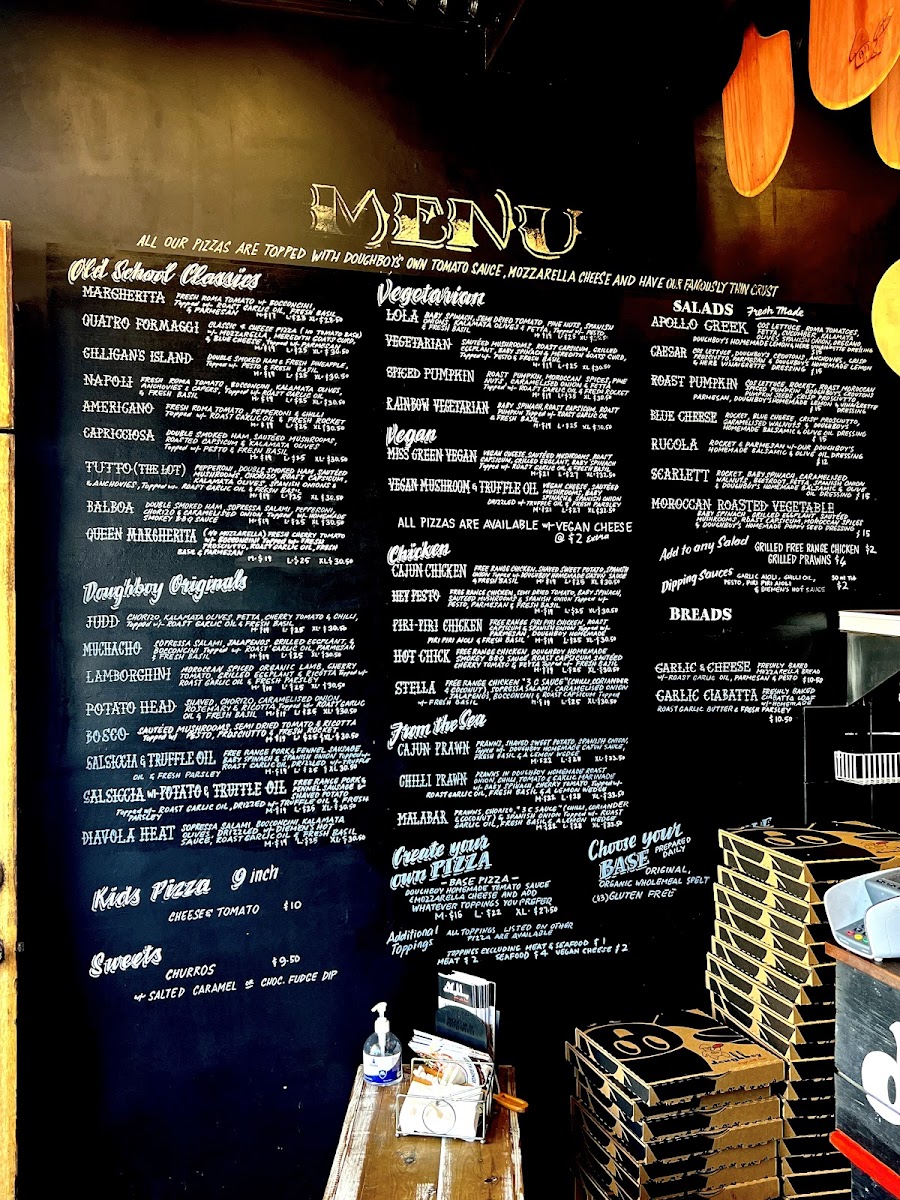 MENU
ALL OUR PIZZAS ARE TOPPED WITH DOUGHBOYS' OWN TOMATO SAUCE, MOZZARELLA CHEESE AND HAVE OUR FAMOUSLY THIN CRUST
Old School Classics
MARGHERITA FRESH ROMA TOMATO w/ BOCCONCINI
Topped w/- ROAST GARLIC OIL, FRESH BASIL
& PARMESAN M·$19 L·$25 XL·$29.50
QUATRO FORMAGGI CLASSIC 4 CHEESE PIZZA (NO TOMATO BASE)
w/ MOZZARELLA, MEREDITH GOATS CURD,
& BLUE CHEESE. Topped w/- PARMESAN
M·$19 L·$25 XL·$30.50
GILLIGAN'S ISLAND DOUBLE SMOKED HAM & FRESH PINEAPPLE,
Topped w/- PESTO & FRESH BASIL
M·$19 L·$25 XL·$30.50
NAPOLI FRESH ROMA TOMATO, BOCCONCINI, KALAMATA OLIVES,
ANCHOVIES & CAPERS, Topped w/- ROAST GARLIC OIL
& FRESH BASIL M·$19 L·$25 XL·$30.50
AMERICANO FRESH ROMA TOMATO, PEPPERONI & CHILLI
Topped w/- ROAST GARLIC OIL & FRESH ROCKET
M·$19 L·$25 XL·$30.50
CAPRICCIOSA DOUBLE SMOKED HAM, SAUTÉED MUSHROOMS,
ROASTED CAPSICUM & KALAMATA OLIVES
Topped w/- PESTO & FRESH BASIL
M·$19 L·$25 XL·$30.50
TUTTO (THE LOT) PEPPERONI, DOUBLE SMOKED HAM, SAUTÉED
MUSHROOMS, CHORIZO, ROAST CAPSICUM,
KALAMATA OLIVES, SPANISH ONION
& ANCHOVIES, Topped w/- ROAST GARLIC OIL & FRESH BASIL
M·$19 L·$25 XL·$30.50
BALBOA DOUBLE SMOKED HAM, SOPRESSA SALAMI, PEPPERONI,
CHORIZO & CARAMELISED ONION Topped w/- HOMEMADE
SMOKEY BBQ SAUCE M·$19 L·$25 XL·$30.50
QUEEN MARGHERITA (NO MOZZARELLA) FRESH CHERRY TOMATO
& BOCCONCINI Topped w/- FRESH
PROSCIUTTO, ROAST GARLIC OIL, FRESH
BASIL & PARMESAN
M·$19 L·$25 XL·$30.50
Doughboy Originals
JUDD CHORIZO, KALAMATA OLIVES, FETTA, CHERRY TOMATO & CHILLI,
Topped w/- ROAST GARLIC OIL & FRESH BASIL
M·$19 L·$25 XL·$30.50
MUCHACHO SOPRESSA SALAMI, JALAPENOS, GRILLED EGGPLANT, &
BOCCONCINI Topped w/- ROAST GARLIC OIL, PARMESAN
& FRESH BASIL M·$19 L·$25 XL·$30.50
LAMBORGHINI MOROCCAN SPICED ORGANIC LAMB, CHERRY
TOMATO, GRILLED EGGPLANT & RICOTTA Topped w/-
ROAST GARLIC OIL & FRESH PARSLEY
M·$19 L·$25 XL·$30.50
POTATO HEAD SHAVED, CHORIZO, CARAMELISED ONION,
ROSEMARY & RICOTTA Topped w/- ROAST GARLIC
OIL & FRESH BASIL M·$19 L·$25 XL·$30.50
BOSCO SAUTÉED MUSHROOMS, SEMI DRIED TOMATO & RICOTTA
Topped w/- PESTO, PROSCIUTTO & FRESH ROCKET
M·$19 L·$25 XL·$30.50
SALSICCIA & TRUFFLE OIL FREE RANGE PORK & FENNEL SAUSAGE,
BABY SPINACH & SPANISH ONION Topped w/-
ROAST GARLIC OIL, DRIZZLED w/- TRUFFLE
OIL & FRESH PARSLEY M·$19 L·$25 XL·$30.50
SALSICCIA w/- POTATO & TRUFFLE OIL FREE RANGE PORK &
FENNEL SAUSAGE &
SHAVED POTATO
Topped w/- ROAST GARLIC OIL, DRIZZED w/- TRUFFLE OIL & FRESH
PARSLEY M·$19 L·$25 XL·$30.50
DIAVOLA HEAT SOPRESSA SALAMI, BOCCONCINI, KALAMATA
OLIVES. DRIZZLED w/- DIEMEN'S HOT
SAUCE, ROAST GARLIC OIL & FRESH BASIL
M·$19 L·$25 XL·$30.50
Kids Pizza 9 inch
CHEESE & TOMATO $10
Sweets
CHURROS $9.50
w/- SALTED CARAMEL OR CHOC. FUDGE DIP
Vegetarian
LOLA BABY SPINACH, SEMI DRIED TOMATO, PINE NUTS, SPANISH
ONION, KALAMATA OLIVES & FETTA, Topped w/- PESTO
& FRESH BASIL M·$19 L·$25
VEGETARIAN SAUTÉED MUSHROOMS, ROAST CAPSICUM, GRILLED
EGGPLANT, BABY SPINACH & MEREDITH GOATS CURD,
Topped w/- ROAST GARLIC OIL & FRESH BASIL
M·$19 L·$25 XL·$30.50
SPICED PUMPKIN ROAST PUMPKIN, MOROCCAN SPICES, PINE
NUTS, CARAMELISED ONION & FETTA
Topped w/- ROAST GARLIC OIL & FRESH ROCKET
M·$19 L·$25 XL·$30.50
RAINBOW VEGETARIAN BABY SPINACH, ROAST CAPSICUM, ROAST
PUMPKIN Topped w/- ROAST GARLIC OIL
& FRESH BASIL
M·$19 L·$25 XL·$30.50
Vegan
MISS GREEN VEGAN VEGAN CHEESE, SAUTÉED MUSHROOMS, ROAST
CAPSICUM, GRILLED EGGPLANT, BABY SPINACH
Topped w/- ROAST GARLIC OIL & FRESH BASIL
M·$21 L·$27 XL·$32.50
VEGAN MUSHROOM & TRUFFLE OIL VEGAN CHEESE, SAUTÉED
MUSHROOMS, BABY
SPINACH & SPANISH ONION
DRIZZLED w/- TRUFFLE OIL & FRESH PARSLEY
ALL PIZZAS ARE AVAILABLE w/- VEGAN CHEESE
@ $2 Extra
Chicken
CAJUN CHICKEN FREE RANGE CHICKEN, SHAVED SWEET POTATO, SPANISH
ONION Topped w/- DOUGHBOY HOMEMADE CAJUN SAUCE
& FRESH BASIL M·$19 L·$25 XL·$30.50
HEY PESTO FREE RANGE CHICKEN, SEMI DRIED TOMATO, BABY SPINACH,
SAUTÉED MUSHROOMS & SPANISH ONION Topped w/-
PESTO, PARMESAN & FRESH BASIL
M·$19 L·$25 XL·$30.50
PIRI-PIRI CHICKEN FREE RANGE PIRI PIRI CHICKEN, ROAST
CAPSICUM & SPANISH ONION Topped w/-
PARMESAN, DOUGHBOY HOMEMADE
PIRI PIRI AIOLI & FRESH BASIL M·$19 L·$25 XL·$30.50
HOT CHICK FREE RANGE CHICKEN, DOUGHBOY HOMEMADE
SMOKEY BBQ SAUCE, ROAST CAPSICUM, SAUTÉED
CHERRY TOMATO & FETTA Topped w/- FRESH BASIL
M·$19 L·$25 XL·$30.50
STELLA FREE RANGE CHICKEN "3 C SAUCE" (CHILLI, CORIANDER
& COCONUT), SOPRESSA SALAMI, CARAMELISED ONION
JALAPENOS, BOCCONCINI & ROAST CAPSICUM Topped
w/- FRESH BASIL M·$19 L·$25 XL·$30.50
From the Sea
CAJUN PRAWN PRAWNS, SHAVED SWEET POTATO, SPANISH ONION,
Topped w/- DOUGHBOY HOMEMADE CAJUN SAUCE,
FRESH BASIL & A LEMON WEDGE
M·$22 L·$28 XL·$33.50
CHILLI PRAWN PRAWNS IN DOUGHBOY HOMEMADE ROAST
ONION, CHILLI, TOMATO & GARLIC MARINADE
w/- BABY SPINACH, CHERRY TOMATO Topped w/-
ROAST GARLIC OIL, FRESH BASIL & A LEMON WEDGE
M·$22 L·$28 XL·$33.50
MALABAR PRAWNS, CHORIZO, "3 C SAUCE" (CHILLI, CORIANDER
& COCONUT) & SPANISH ONION Topped w/- ROAST
GARLIC OIL, FRESH BASIL & A LEMON WEDGE
M·$22 L·$28 XL·$33.50
Create your
own PIZZA
– BASE PIZZA –
DOUGHBOY HOMEMADE TOMATO SAUCE
& MOZZARELLA CHEESE AND ADD
WHATEVER TOPPINGS YOU PREFER
M·$16 L·$22 XL·$27.50
Additional Toppings
ALL TOPPINGS LISTED ON OTHER
PIZZA ARE AVAILABLE
TOPPINGS EXCLUDING MEAT & SEAFOOD $1
MEAT $2 SEAFOOD $4 VEGAN CHEESE $2
Choose your
BASE PREPARED DAILY
ORIGINAL,
ORGANIC WHOLEMEAL SPELT
(+$3) GLUTEN FREE
SALADS Fresh Made
APOLLO GREEK COS LETTUCE, ROMA TOMATOES,
FETTA, CUCUMBER, KALAMATA
OLIVES, SPANISH ONION, OREGANO,
DOUGHBOY'S HOMEMADE LEMON & HERB VINAIGRETTE DRESSING
$15
CAESAR COS LETTUCE, DOUGHBOY'S CROUTONS, ANCHOVIES, CRISP
PROSCIUTTO, PARMESAN & DOUGHBOY'S HOMEMADE LEMON
& HERB VINAIGRETTE DRESSING $15
ROAST PUMPKIN COS LETTUCE, ROCKET, ROAST MOROCCAN
PUMPKIN, DOUGHBOY'S CROUTONS
PUMPKIN SEEDS, CRISP PROSCIUTTO,
PARMESAN, DOUGHBOY'S HOMEMADE LEMON & VINAIGRETTE
$15 DRESSING
BLUE CHEESE ROCKET, BLUE CHEESE, CRISP PROSCIUTTO,
CARAMELISED WALNUTS & DOUGHBOY'S
HOMEMADE BALSAMIC & OLIVE OIL DRESSING
$15
RUGOLA ROCKET & PARMESAN w/- OUR DOUGHBOY'S
HOMEMADE BALSAMIC & OLIVE OIL DRESSING
$12
SCARLETT ROCKET, BABY SPINACH, CARAMELISED
WALNUTS, BEETROOT, FETTA, SPANISH ONION
& DOUGHBOY'S HOMEMADE BALSAMIC & OLIVE
OIL DRESSING $15
MOROCCAN ROASTED VEGETABLE
BABY SPINACH, GRILLED EGGPLANT, SAUTÉED
MUSHROOMS, ROAST CAPSICUM, MOROCCAN SPICES
& DOUGHBOY'S HOMEMADE POPPY SEED DRESSING
$15
Add to any Salad GRILLED FREE RANGE CHICKEN $2
GRILLED PRAWNS $4
Dipping Sauces GARLIC AIOLI, CHILLI OIL,
PESTO, PIRI PIRI AIOLI
& DIEMENS HOT SAUCE
30 ml Tub
$2
BREADS
GARLIC & CHEESE FRESHLY BAKED
MOZZARELLA BREAD
w/- ROAST GARLIC OIL, PARMESAN & PESTO $10.50
GARLIC CIABATTA FRESHLY BAKED
CIABATTA LOAF
w/- HOMEMADE
ROAST GARLIC BUTTER & FRESH PARSLEY
$10.50